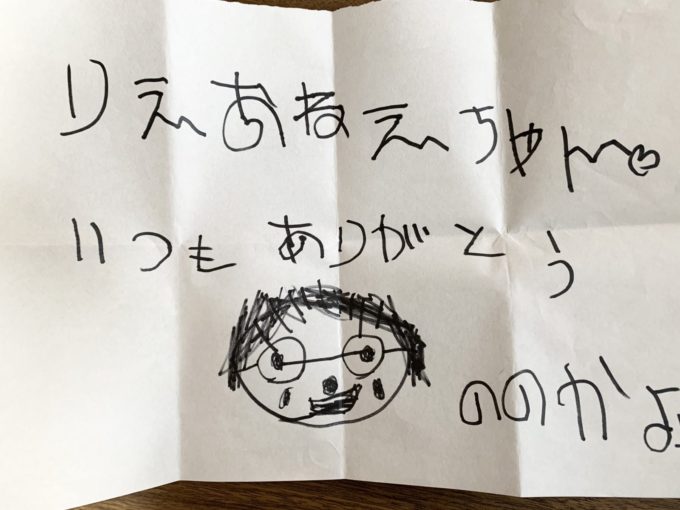 りえあねえちゃんへ
いつもありがとう
ののかよ